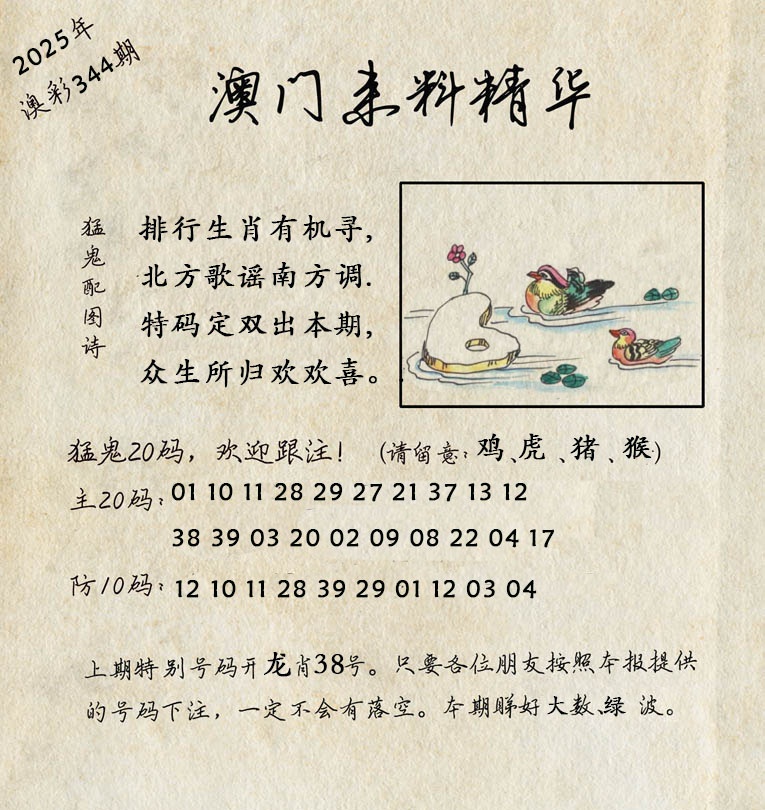 2025年
澳彩344期
澳门来料精华
猛鬼配图诗
排行生肖有机寻,
北方歌谣南方调.
特码定双出本期,
众生所归欢欢喜。
猛鬼20码，欢迎跟注！（请留意：鸡、虎、猪、猴）
主20码：01 10 11 28 29 27 21 37 13 12
38 39 03 20 02 09 08 22 04 17
防10码：12 10 11 28 39 29 01 12 03 04
上期特别号码开龙肖38号。只要各位朋友按照本报提供
的号码下注，一定不会有落空。本期睇好大数、绿 波。